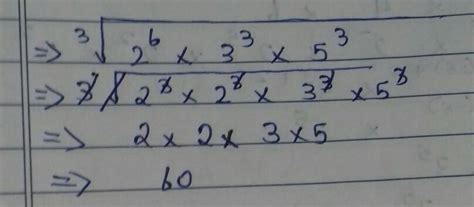 ⇒ ∛(2⁶ × 3³ × 5³)
⇒ ∛(2³ × 2³ × 3³ × 5³)
⇒ 2 × 2 × 3 × 5
⇒ 60